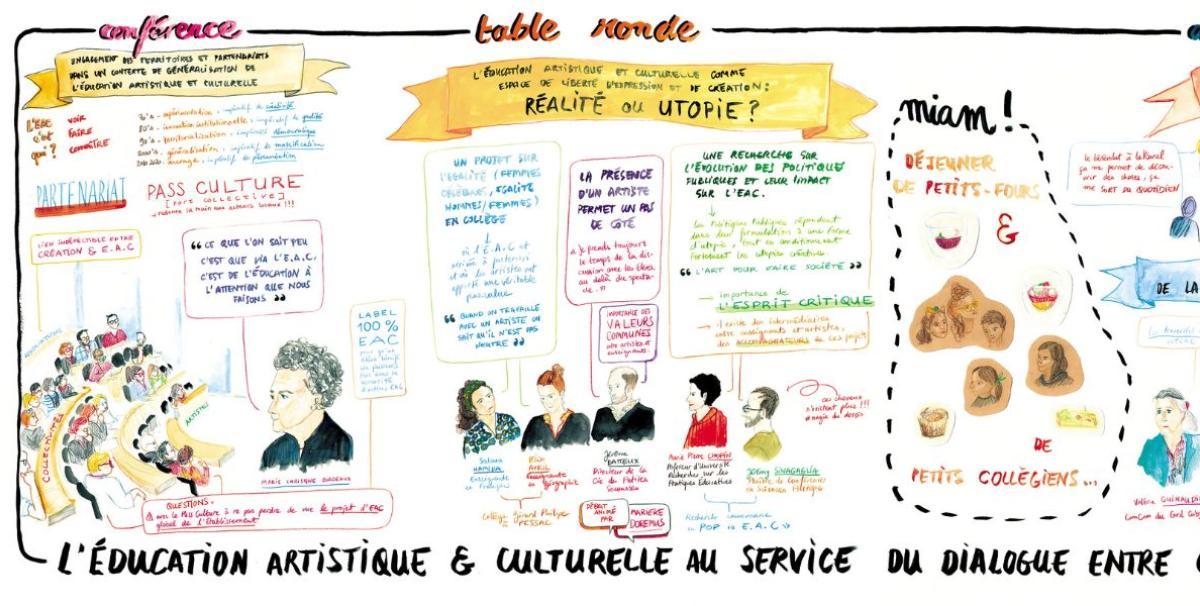 conférence
ENGAGEMENT DES TERRITOIRES ET PARTENARIATS
DANS UN CONTEXTE DE GÉNÉRALISATION DE
L'ÉDUCATION ARTISTIQUE ET CULTURELLE
L'EAC
c'est
quoi ?
VOIR
FAIRE
CONNAÎTRE
expérimentation - impératif de créativité
80's - innovation institutionnelle - impératif de qualité
90's - territorialisation - impératif démocratique
2000's - généralisation - impératif de massification
impératif de pérennisation
PARTENARIAT
PASS CULTURE
[PART COLLECTIVE]
→ redonne la main aux acteurs locaux !!!
LIEN INDÉFECTIBLE ENTRE
CRÉATION & E.A.C
“ CE QUE L'ON SAIT PEU
C'EST QUE VIA L'E.A.C.
C'EST DE L'ÉDUCATION À
L'ATTENTION QUE NOUS
FAISONS ”
LABEL
100 %
EAC
COLLECTIVITÉS
ARTISTES
MARIE CHRISTINE BORDEAUX
QUESTIONS.
avec le Pass Culture à ne pas perdre de vue le projet d'EAC
global de l'Établissement
table ronde
L'ÉDUCATION ARTISTIQUE ET CULTURELLE COMME
ESPACE DE LIBERTÉ D'EXPRESSION ET DE CRÉATION :
RÉALITÉ OU UTOPIE ?
UN PROJET SUR
L'ÉGALITÉ (FEMMES
CÉLÈBRES, ÉGALITÉ
HOMMES/FEMMES)
EN COLLÈGE
où l'E.A.C et
arrivée à
où les artistes ont
apporté une véritable
plus value
“ QUAND ON TRAVAILLE
AVEC UN ARTISTE ON
SAIT QU'IL N'EST PAS
NEUTRE ”
LA PRÉSENCE
D'UN ARTISTE
PERMET UN PAS
DE CÔTÉ
« je prends toujours
le temps de la dis-
cussion avec les élèves
au delà du specta-
cle. »
IMPORTANCE DES
VALEURS
COMMUNES
entre artistes et
enseignants
UNE RECHERCHE SUR
L'ÉVOLUTION DES POLITIQUES
PUBLIQUES ET LEUR IMPACT
SUR L'EAC.
les Politiques Publiques répondent
dans leur formulation à une forme
d'utopie, tout en conditionnant
fortement les utopies créatives.
“ L'ART POUR FAIRE SOCIÉTÉ ”
→ importance de
L'ESPRIT CRITIQUE
→ il existe des intermédiaires
entre enseignants et artistes,
des ACCOMPAGNATEURS de ces projets
ces cheveux
n'existent plus !!!
magie du dessin
HAMIDA
Enseignante
en Français
AVRIL
Enseignante
Géographie
Collège Gérard Philipe
PESSAC
Jérôme
BATTEUX
Directeur de la
Cie du Petites
Secousses
DÉBAT
ANIMÉ
PAR
MARIERE
DOREMUS
Marie Pierre CHOPIN
Professeur d'Université
Recherches sur les
Pratiques Éducatives
Jérémy SINAGAGLIA
Maître de Conférences
en Sciences
Recherche
« POP in E.A.C »
miam !
DÉJEUNER
DE PETITS-FOURS
&
DE
PETITS COLLÉGIENS...
le bénévolat à
ça me permet de décou-
vrir des choses, ça
me SORT DU QUOTIDIEN
DE LA
Valérie
L'ÉDUCATION ARTISTIQUE & CULTURELLE AU SERVICE DU DIALOGUE ENTRE